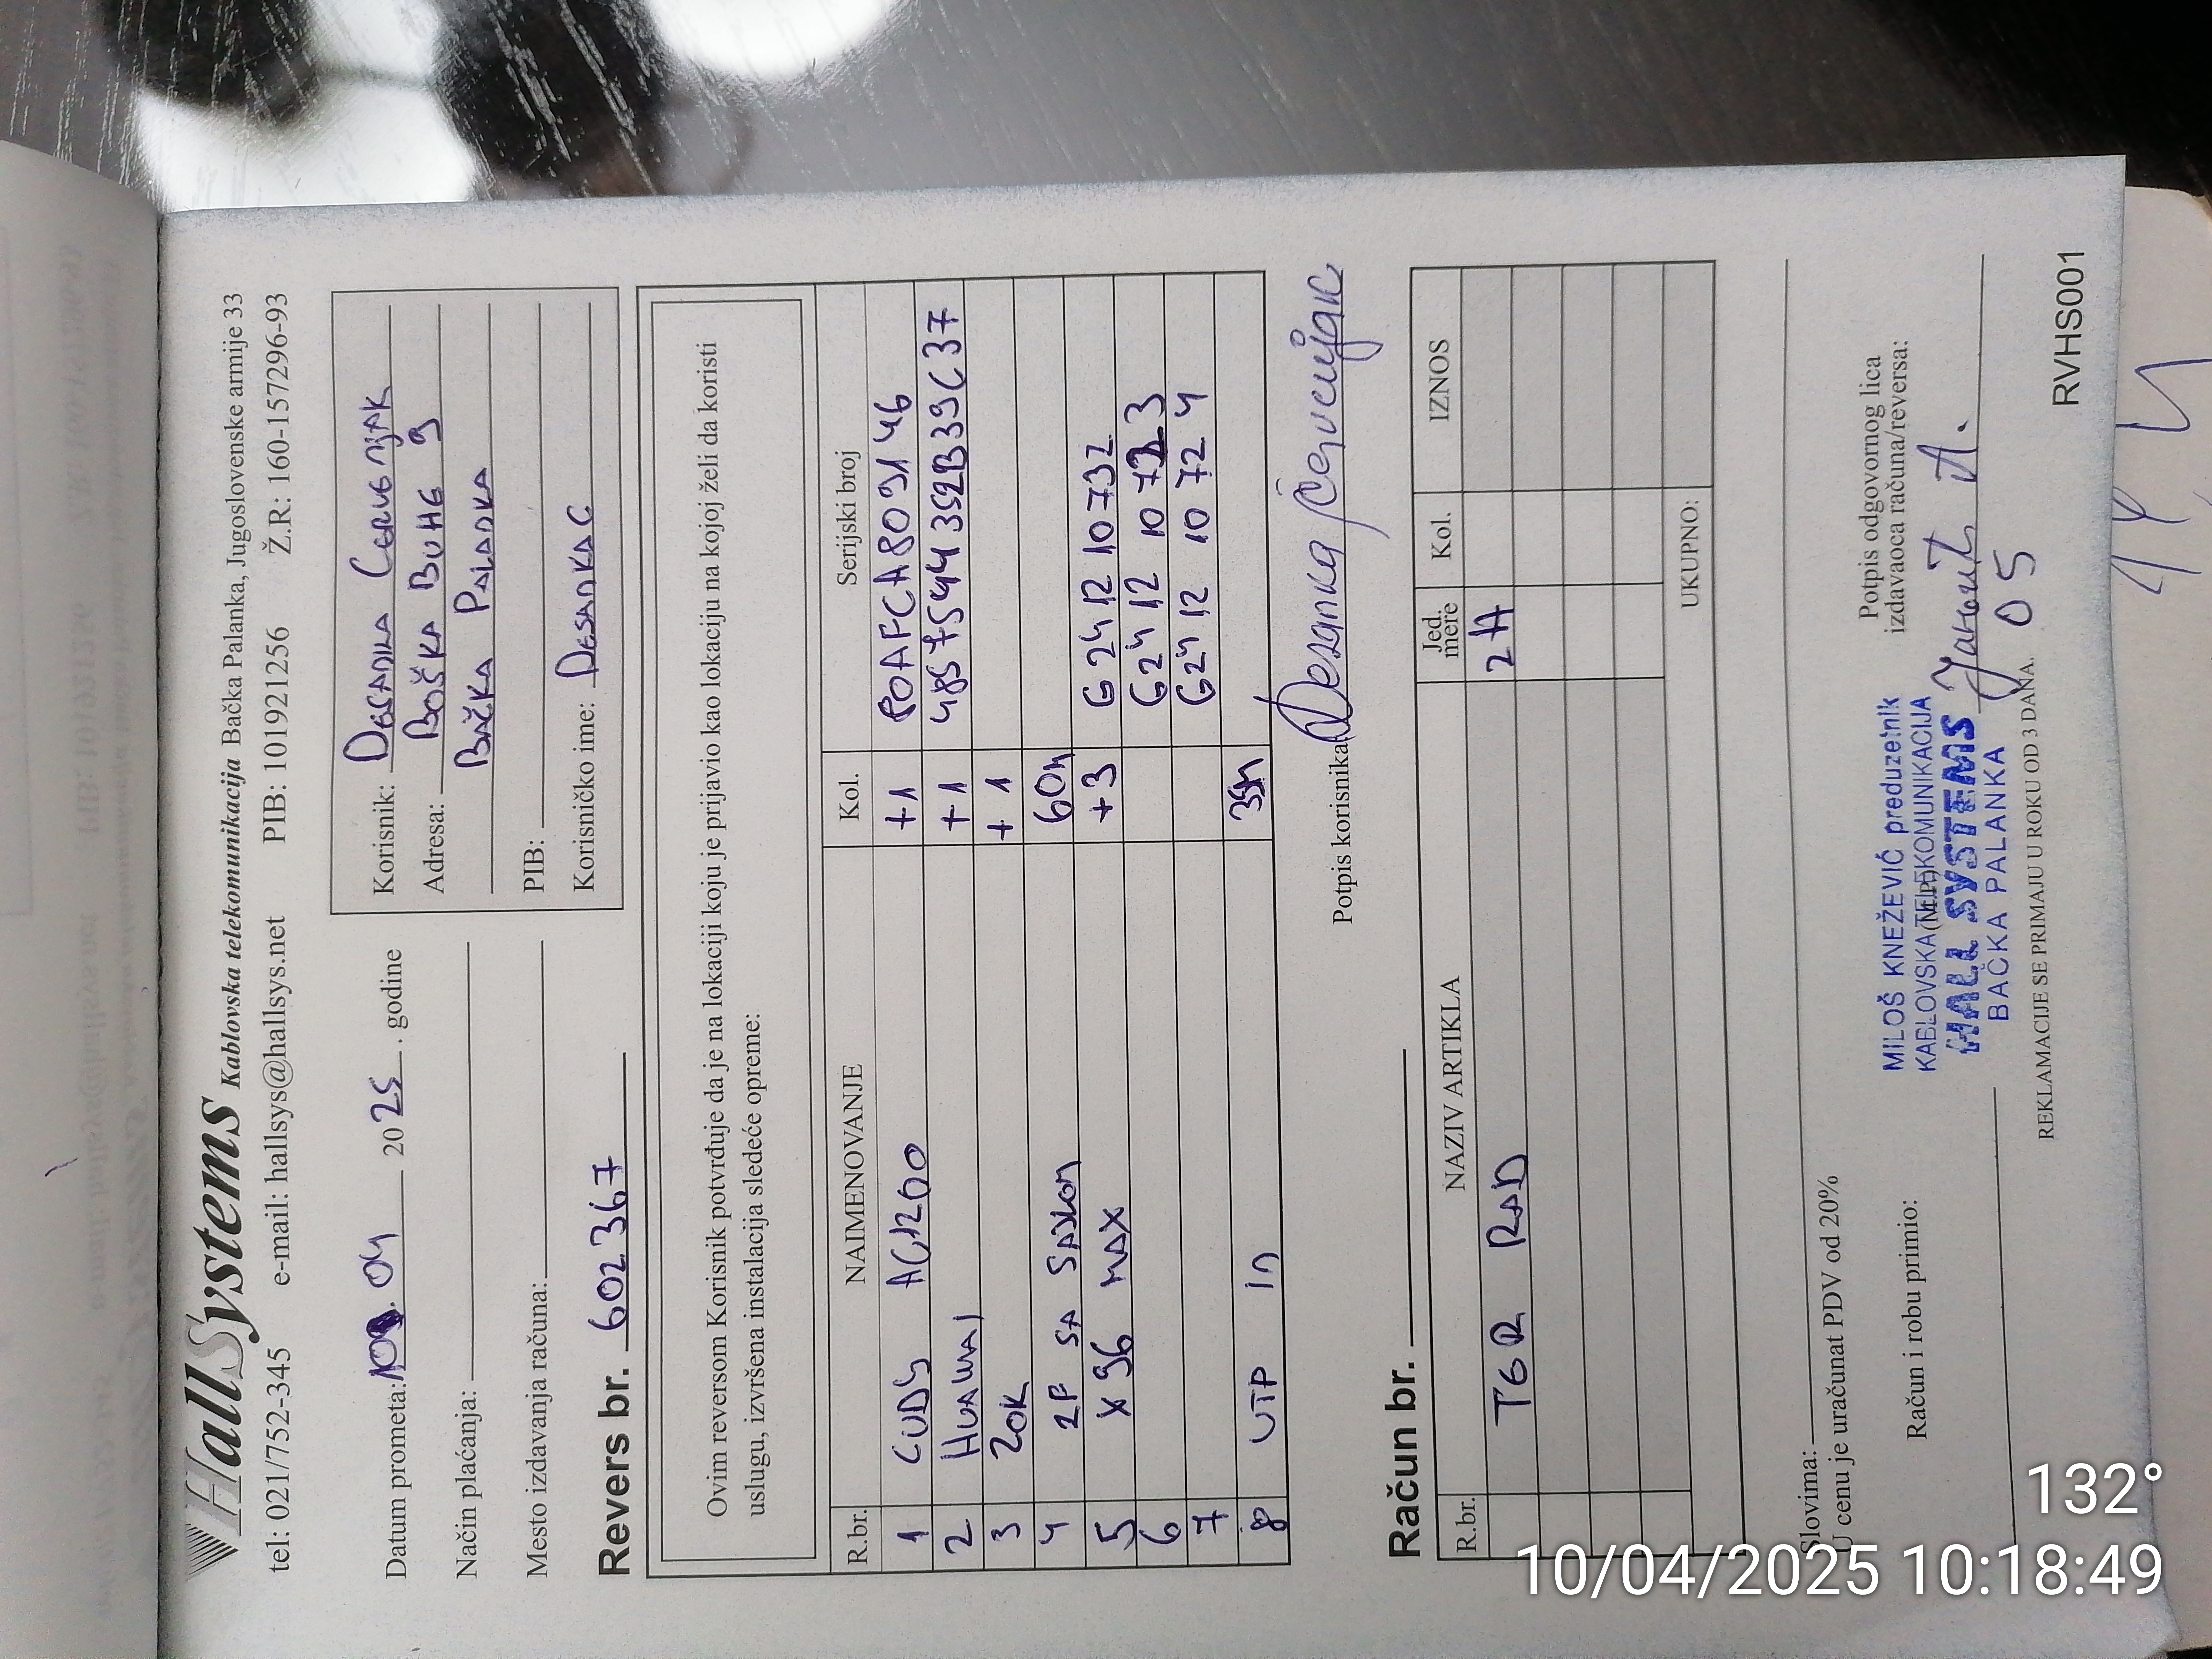 HallSystems Kablovska telekomunikacija Bačka Palanka, Jugoslovenske armije 33
tel: 021/752-345 e-mail: hallsys@hallsys.net PIB: 101921256 Ž.R: 160-157296-93
Datum prometa: 10. 04 2025. godine
Način plaćanja:
Mesto izdavanja računa:
Korisnik: DESANKA CERVENJAK
Adresa: BOŠKA BUHE 9
BAČKA PALANKA
PIB:
Korisničko ime: DESANKAC
Revers br. 602367
Ovim reversom Korisnik potvrđuje da je na lokaciji koju je prijavio kao lokaciju na kojoj želi da koristi
uslugu, izvršena instalacija sledeće opreme:
R.br. NAIMENOVANJE Kol. Serijski broj
1 CUDY AC1200 +1 POAFCA809146
2 HUAWAI +1 485754434352B39C37
3 ZOK +1
4 2P SA SAJLOM 60m
5 X96 MAX +3 G241210732
6 G241210723
7 G241210724
8 UTP IN 35m
Potpis korisnika Desanka Červenjak
Račun br.
R.br. NAZIV ARTIKLA Jed. mere Kol. IZNOS
TER RAD 2H
UKUPNO:
Slovima:
U cenu je uračunat PDV od 20%
Račun i robu primio:
(M.P.)
Potpis odgovornog lica
izdavaoca računa/reversa:
MILOŠ KNEŽEVIĆ preduzetnik
KABLOVSKA TELEKOMUNIKACIJA
HALL SYSTEMS
BAČKA PALANKA
05
REKLAMACIJE SE PRIMAJU U ROKU OD 3 DANA.
RVHS001
132°
10/04/2025 10:18:49